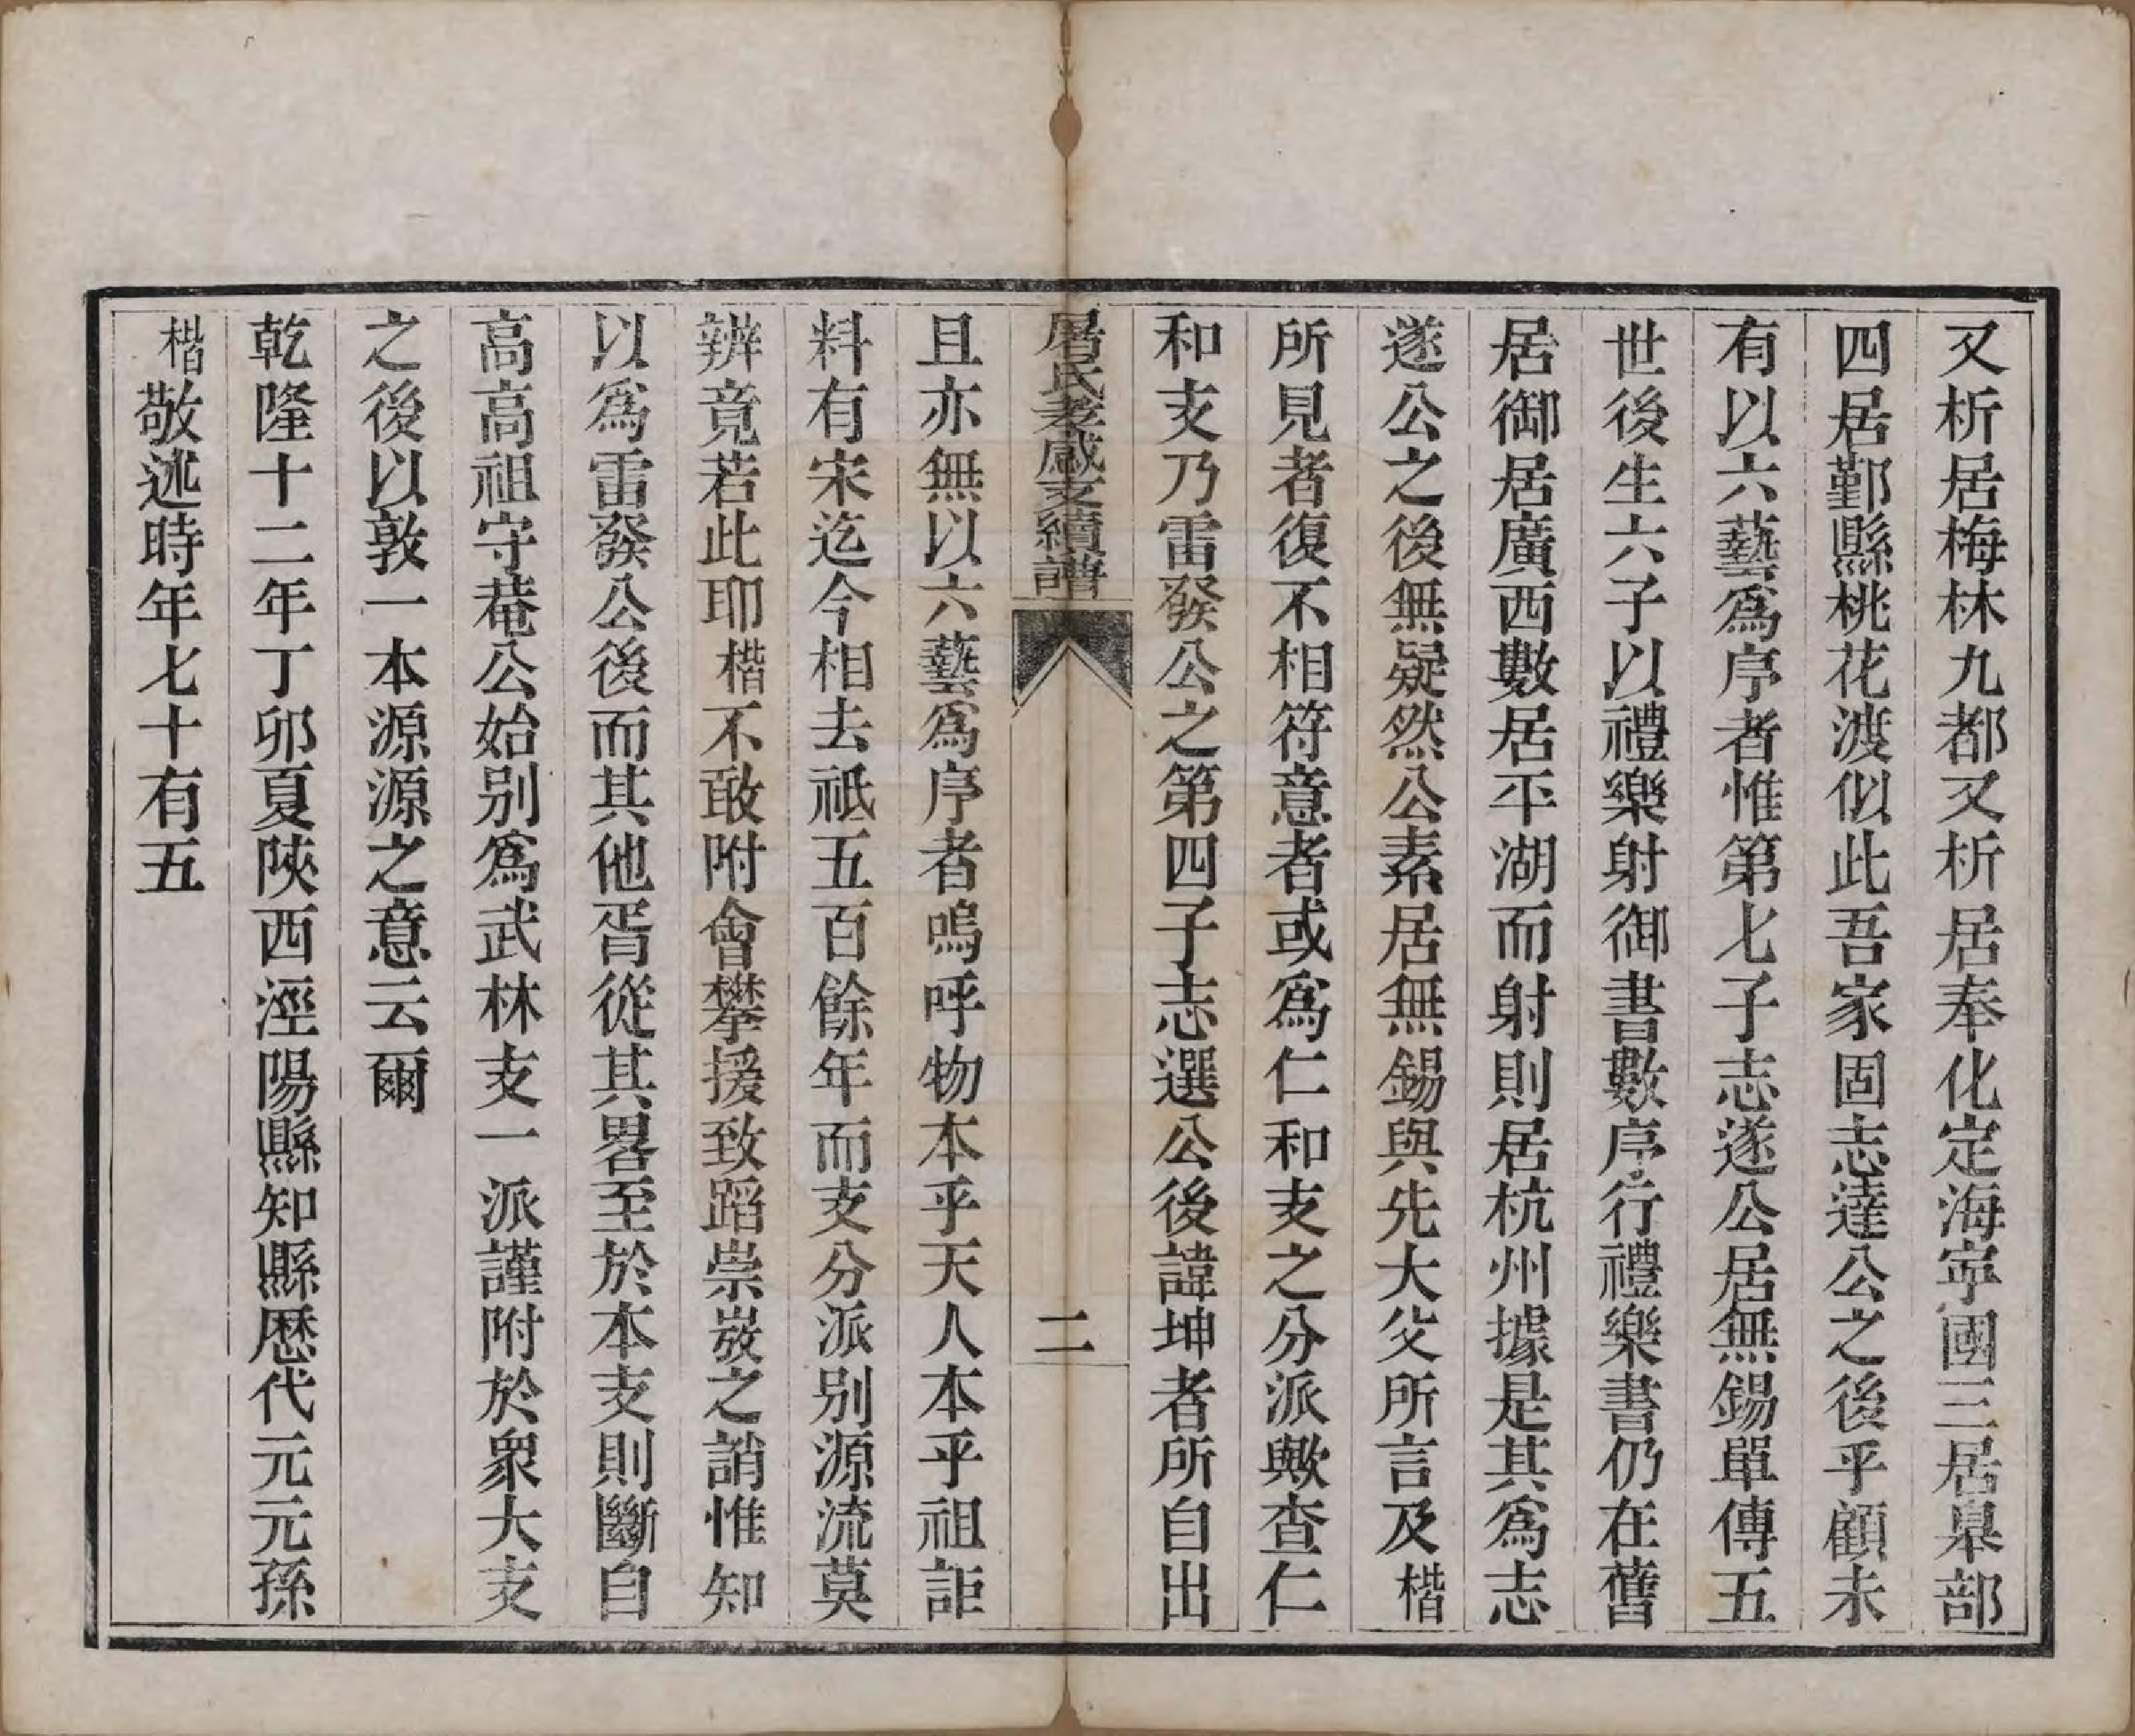 又析居梅林九都又析居奉化定海寕國三居臯部
四居鄞縣桃花渡似此吾家固志達公之後乎顧未
有以六藝爲序者惟第七子志遂公居無錫單傳五
世後生六子以禮樂射御書數序行禮樂書仍在舊
居御居廣西數居平湖而射則居杭州據是其爲志
遂公之後無疑然公素居無錫與先大父所言及楷
所見者復不相符意者或爲仁和支之分派歟查仁
和支乃雷發公之第四子志選公後諱坤者所自出
屠氏孝感支續譜
二
且亦無以六藝爲序者嗚呼物本乎天人本乎祖詎
料有宋迄今相去祗五百餘年而支分派别源流莫
辨竟若此耶楷不敢附會攀援致蹈崇𡽪之誚惟知
以爲雷發公後而其他胥從其畧至於本支則斷自
高高祖守菴公始别爲武林支一派謹附於衆大支
之後以敦一本源源之意云爾
乾隆十二年丁卯夏陝西涇陽縣知縣歷代元元孫
楷敬述時年七十有五